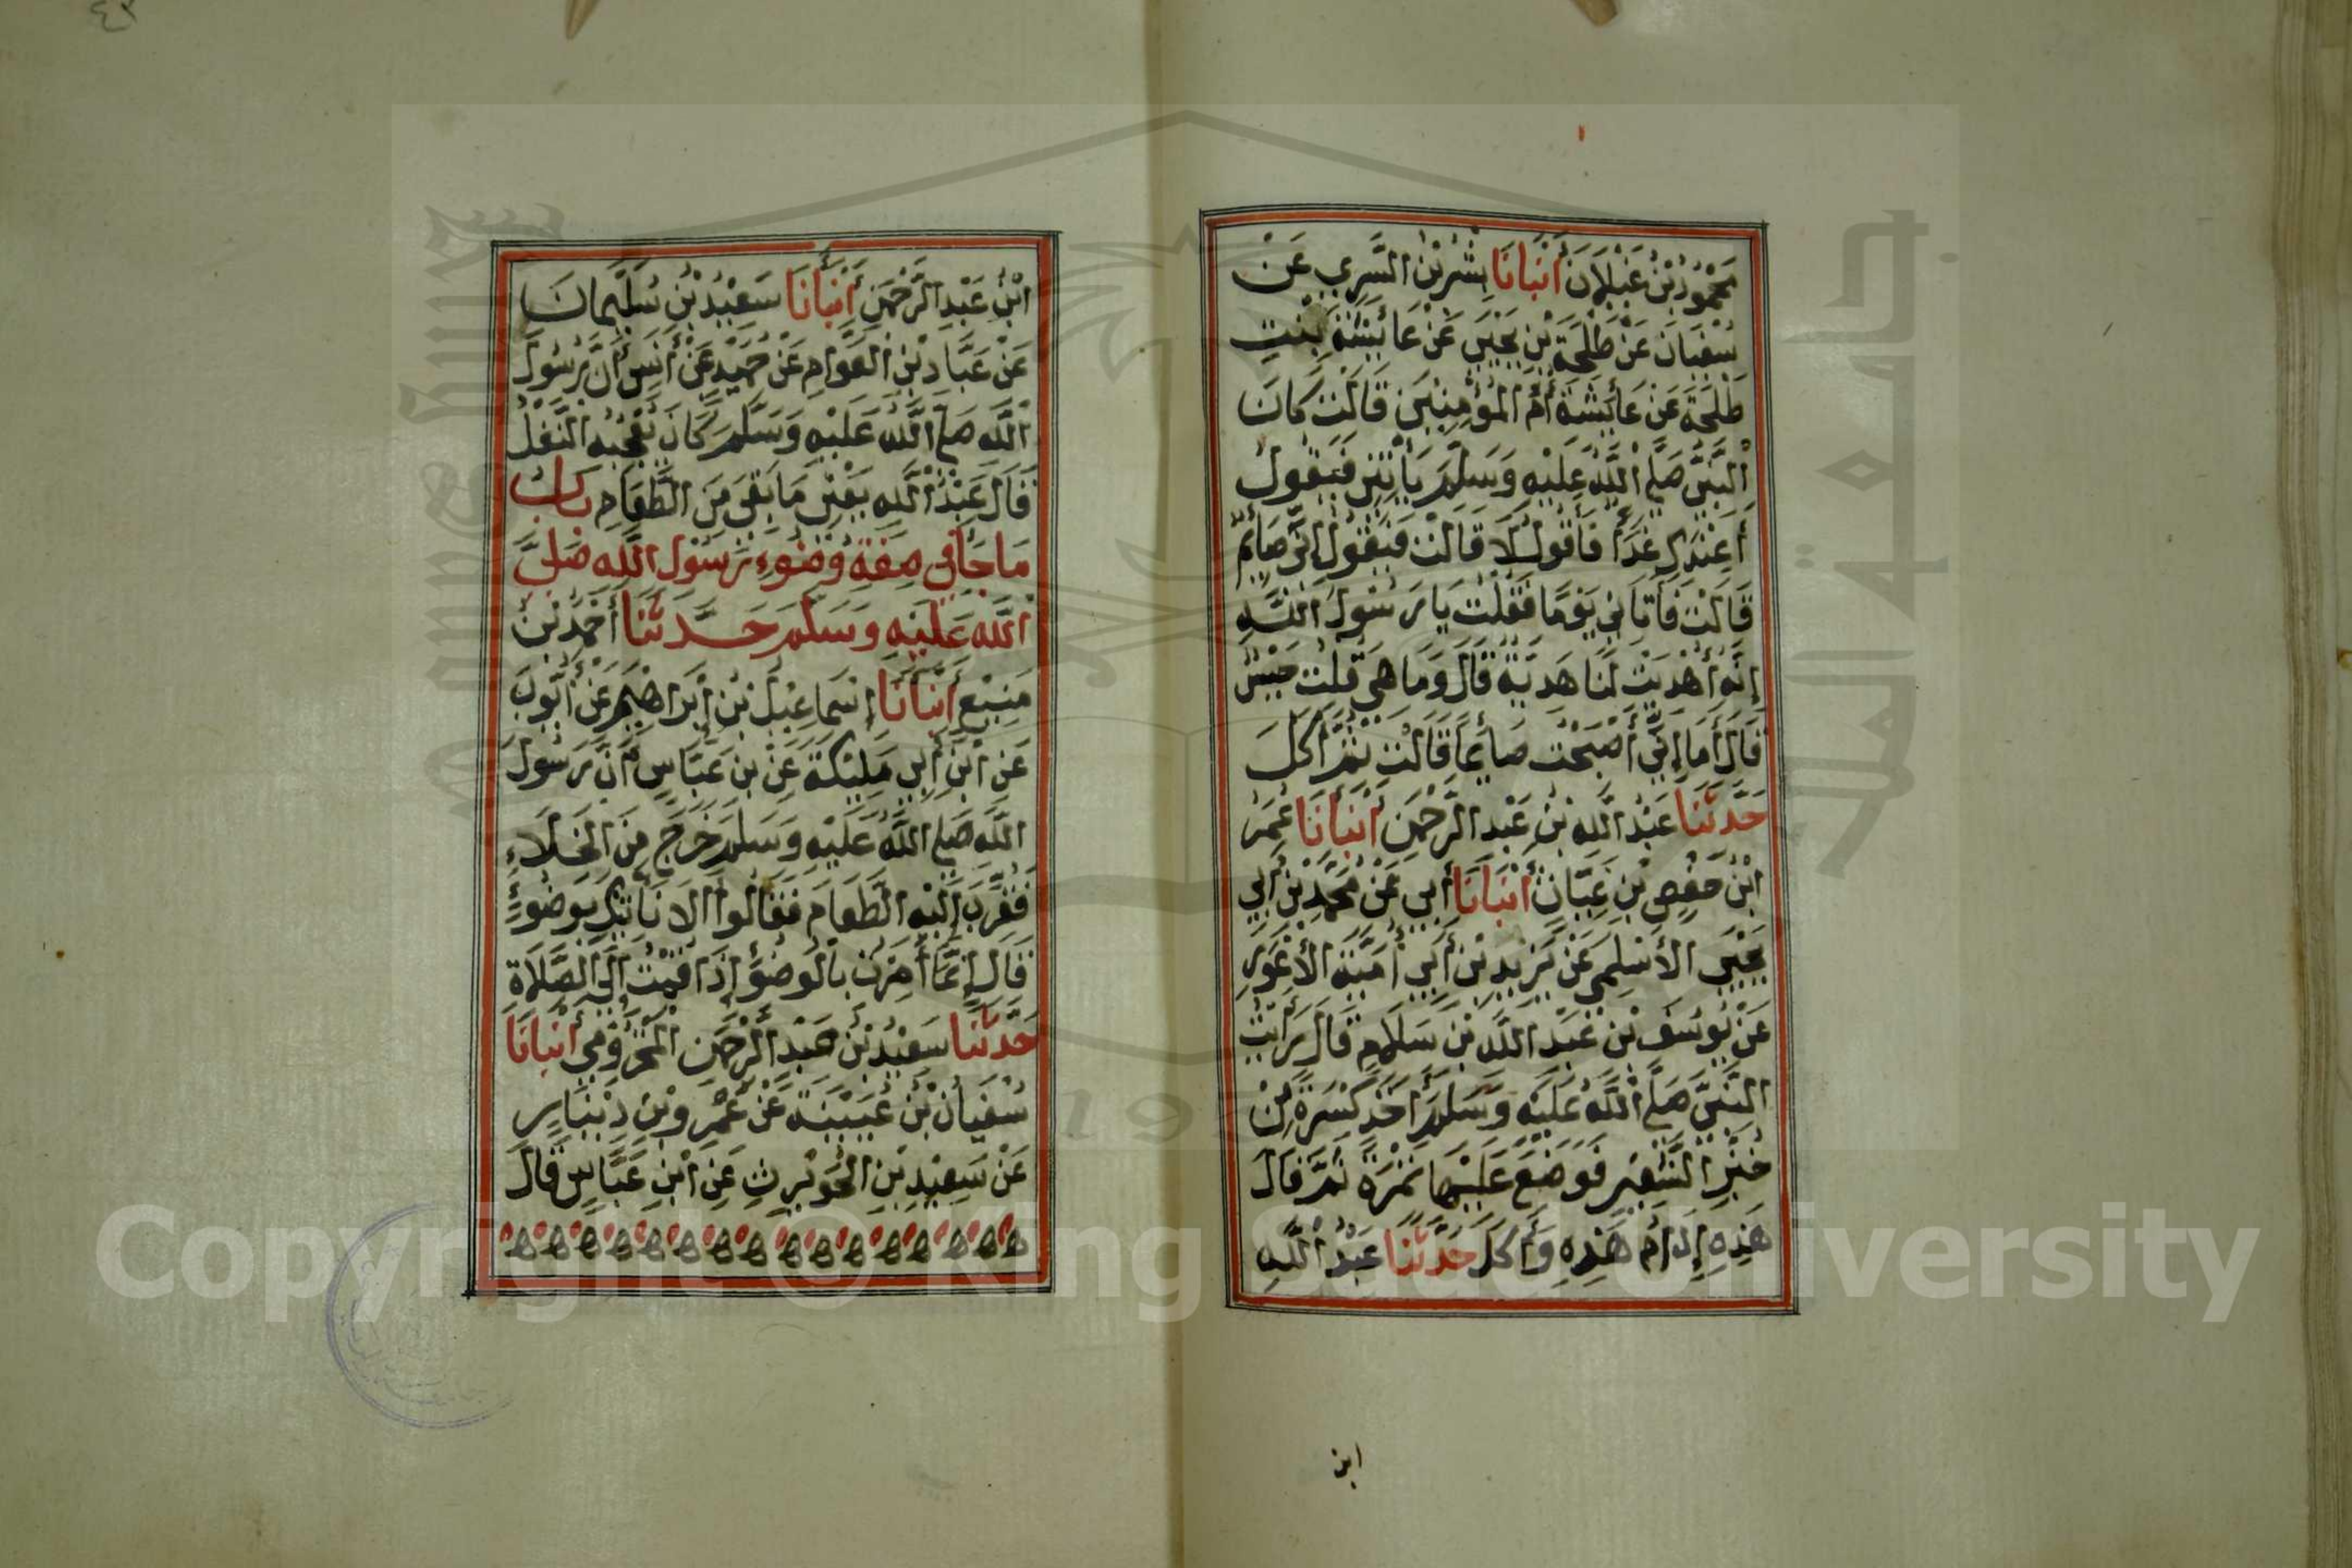 مَحْمُودُ بْنُ غَيْلَانَ أَنْبَأَنَا بِشْرُ بْنُ السَّرِيِ عَنْ
سُفْيَانَ عَنْ طَلْحَةَ بْنِ يَحْيَى عَنْ عَائِشَةَ بِنْتِ
طَلْحَةَ عَنْ عَائِشَةَ أُمِّ الْمُؤْمِنِينَ قَالَتْ كَانَ
النَّبِيُّ صَلَّى اللَّهُ عَلَيْهِ وَسَلَّمَ يَأْتِينِي فَيَقُولُ
أَعِنْدَكِ غَدَاءٌ فَأَقُولُ لَا قَالَتْ فَيَقُولُ إِنِّي صَائِمٌ
قَالَتْ فَأَتَانِي يَوْمًا فَقُلْتُ يَا رَسُولَ اللَّهِ
إِنَّهُ أُهْدِيَتْ لَنَا هَدِيَّةٌ قَالَ وَمَا هِيَ قُلْتُ حَيْسٌ
قَالَ أَمَا إِنِّي أَصْبَحْتُ صَائِمًا قَالَتْ ثُمَّ أَكَلَ
حَدَّثَنَا عَبْدُ اللَّهِ بْنُ عَبْدِ الرَّحْمَنِ أَنْبَأَنَا عُمَرُ
ابْنُ حَفْصِ بْنِ غِيَاثٍ أَنْبَأَنَا أَبِي عَنْ مُحَمَّدِ بْنِ أَبِي
يَحْيَى الْأَسْلَمِي عَنْ يَزِيدِ بْنِ أَبِي أُمَيَّةَ الْأَعْوَرِ
عَنْ يُوسُفَ بْنِ عَبْدِ اللَّهِ بْنِ سَلَامٍ قَالَ رَأَيْتُ
النَّبِيَّ صَلَّى اللَّهُ عَلَيْهِ وَسَلَّمَ أَخَذَ كِسْرَةً مِنْ
خُبْزِ الشَّعِيرِ فَوَضَعَ عَلَيْهَا تَمْرَةً ثُمَّ قَالَ
هَذِهِ إِدَامُ هَذِهِ وَأَكَلَ حَدَّثَنَا عَبْدُ اللَّهِ
ابن
٤٢
ابْنُ عَبْدِ الرَّحْمَنِ أَنْبَأَنَا سَعِيدُ بْنُ سُلَيْمَانَ
عَنْ عَبَّادِ بْنِ الْعَوَّامِ عَنْ حُمَيْدٍ عَنْ أَنَسٍ أَنَّ رَسُولَ
اللَّهِ صَلَّى اللَّهُ عَلَيْهِ وَسَلَّمَ كَانَ يُعْجِبُهُ الثُّفْلُ
قَالَ عَبْدُ اللَّهِ يَعْنِي مَا بَقِيَ مِنَ الطَّعَامِ بَابُ
مَا جَا فِي صِفَةِ وُضُوءِ رَسُولِ اللَّهِ صَلَّى
اللَّهُ عَلَيْهِ وَسَلَّمَ حَدَّثَنَا أَحْمَدُ بْنُ
مَنِيعٍ أَنْبَأَنَا إِسْمَاعِيلُ بْنُ إِبْرَاهِيمَ عَنْ أَيُّوبَ
عَنِ ابْنِ أَبِي مُلَيْكَةَ عَنْ بْنِ عَبَّاسٍ أَنَّ رَسُولَ
اللَّهِ صَلَّى اللَّهُ عَلَيْهِ وَسَلَّمَ خَرَجَ مِنَ الْخَلَاءِ
فَقُرِّبَ إِلَيْهِ الطَّعَامُ فَقَالُوا أَلَا نَأْتِيكَ بِوَضُوءٍ
قَالَ إِنَّمَا أُمِرْتُ بِالْوُضُوءِ إِذَا قُمْتُ إِلَى الصَّلَاةِ
حَدَّثَنَا سَعِيدُ بْنُ عَبْدِ الرَّحْمَنِ الْمَخْزُومِي أَنْبَأَنَا
سُفْيَانُ بْنُ عُيَيْنَةَ عَنْ عَمْرِو بْنِ دِينَارٍ
عَنْ سَعِيدِ بْنِ الْحُوَيْرِثِ عَنِ ابْنِ عَبَّاسٍ قَالَ
Copyright © King Saud University